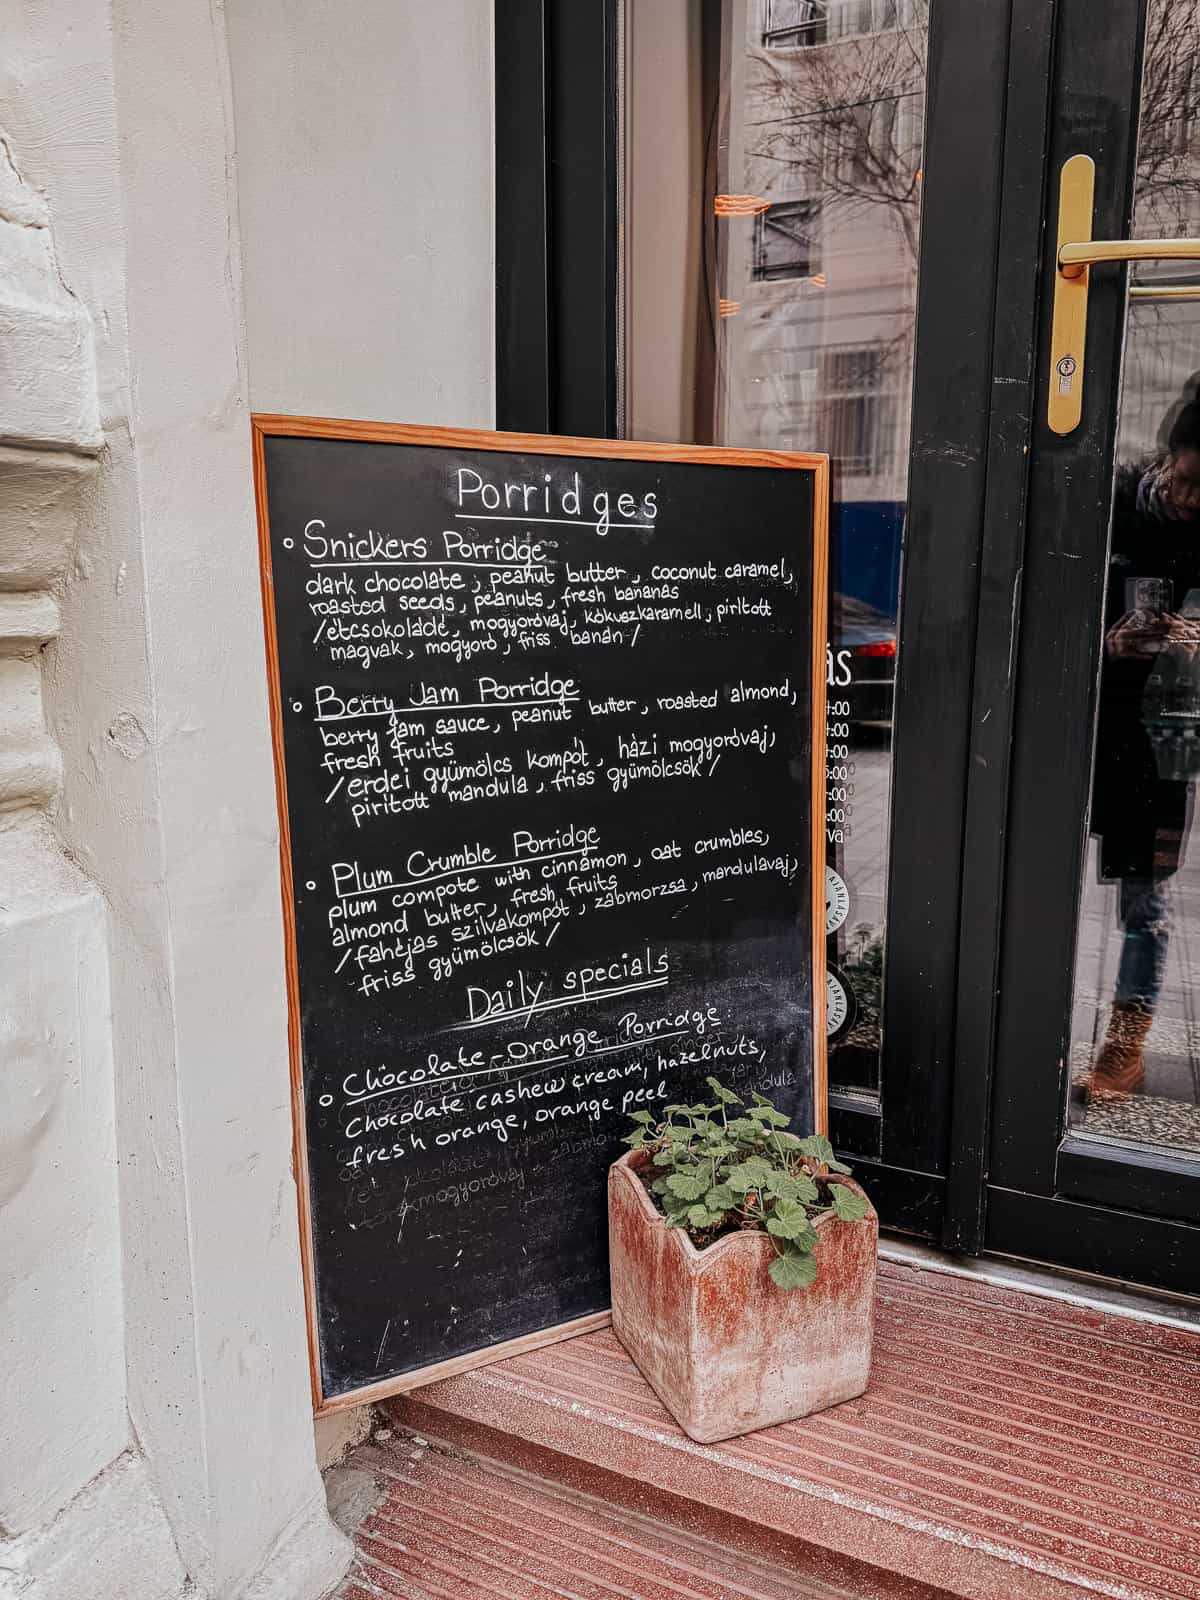 Porridges
Snickers Porridge
dark chocolate, peanut butter, coconut caramel,
roasted seeds, peanuts, fresh bananas
/étcsokoládé, mogyoróvaj, kókuszkaramell, pirított
magvak, mogyoró, friss banán/
Berry Jam Porridge
berry jam sauce, peanut butter, roasted almond,
fresh fruits
/erdei gyümölcs kompót, házi mogyoróvaj,
pirított mandula, friss gyümölcsök/
Plum Crumble Porridge
plum compote with cinnamon, oat crumbles,
almond butter, fresh fruits
/fahéjas szilvakompót, zabmorzsa, mandulavaj,
friss gyümölcsök/
Daily specials
Chocolate-orange Porridge:
Chocolate cashew cream, hazelnuts,
fresh orange, orange peel
mandula
mogyoróvaj, zabmo
ás
:00
:00
:00
:00
:00
:00
va
AJÁNLÁSÁV
AJÁNLÁSÁV